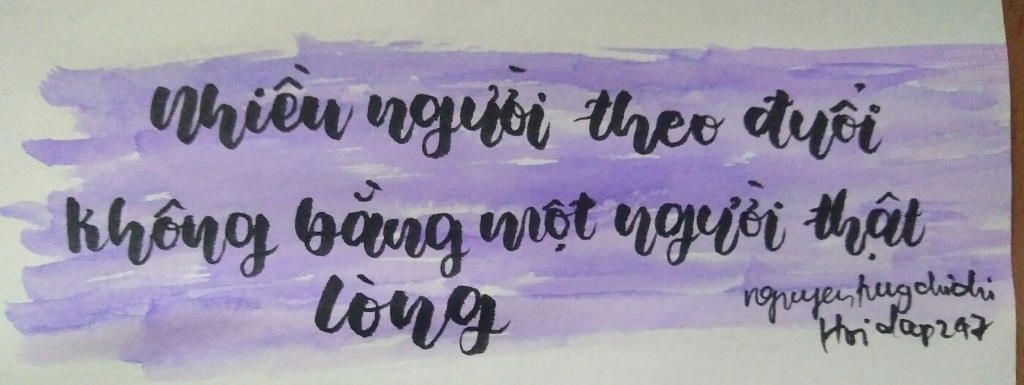 Nhiều người theo đuổi
không bằng một người thật
lòng
nguyentrugchichi
Hoidap247